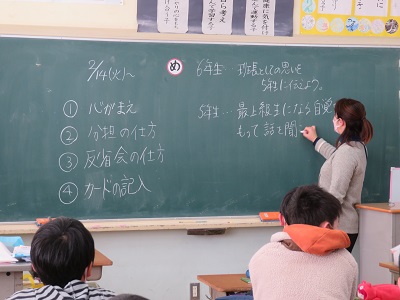 2/14(火)〜
① 心がまえ
② 分担の仕方
③ 反省会の仕方
④ カードの記入
め
6年生 班長としての思いを
5年生に伝えよう。
5年生… 最上級生になる自覚を
もって話を聞